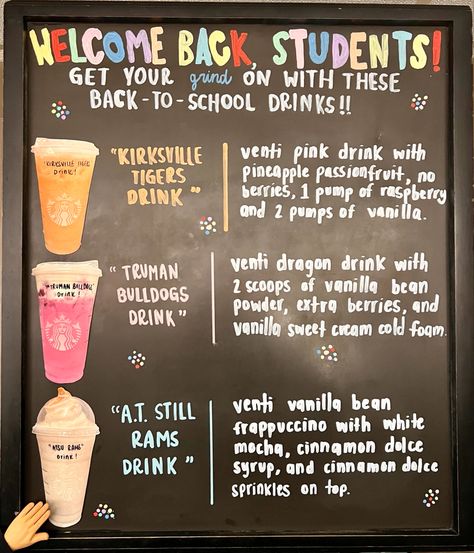 WELCOME BACK, STUDENTS!
GET YOUR grind ON WITH THESE
BACK-TO-SCHOOL DRINKS!!
"KIRKSVILLE TIGERS DRINK!
"KIRKSVILLE
TIGERS
DRINK"
venti pink drink with
pineapple passionfruit, no
berries, 1 pump of raspberry
and 2 pumps of vanilla.
"TRUMAN BULLDOGS"
DRINK!
"TRUMAN
BULLDOGS
DRINK"
venti dragon drink with
2 scoops of vanilla bean
powder, extra berries, and
vanilla sweet cream cold foam.
"ATSU RAMS"
DRINK!
"A.T. STILL
RAMS
DRINK"
venti vanilla bean
frappuccino with white
mocha, cinnamon dolce
syrup, and cinnamon dolce
sprinkles on top.